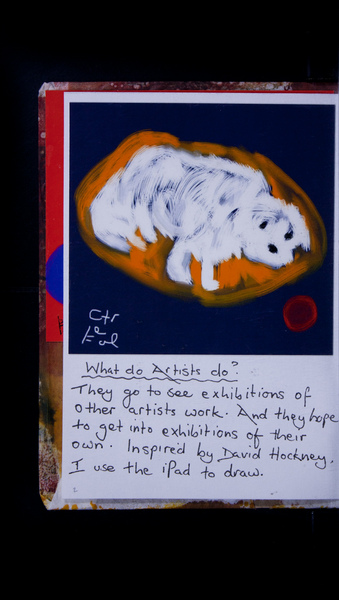 What do Artists do?
They go to see exhibitions of
other artists work. And they hope
to get into exhibitions of their
own. Inspired by David Hockney.
I use the iPad to draw.